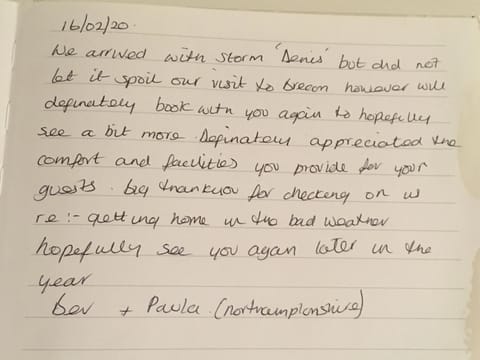 16/02/20.
We arrived with storm 'Denis' but did not
let it spoil our visit to brecon however will
definately book with you again to hopefully
see a bit more. Definately appreciated the
comfort and facilities you provide for your
guests. big thankyou for checking on us
re:- getting home in the bad weather
hopefully see you again later in the
year
bev + Paula. (northamptonshire)